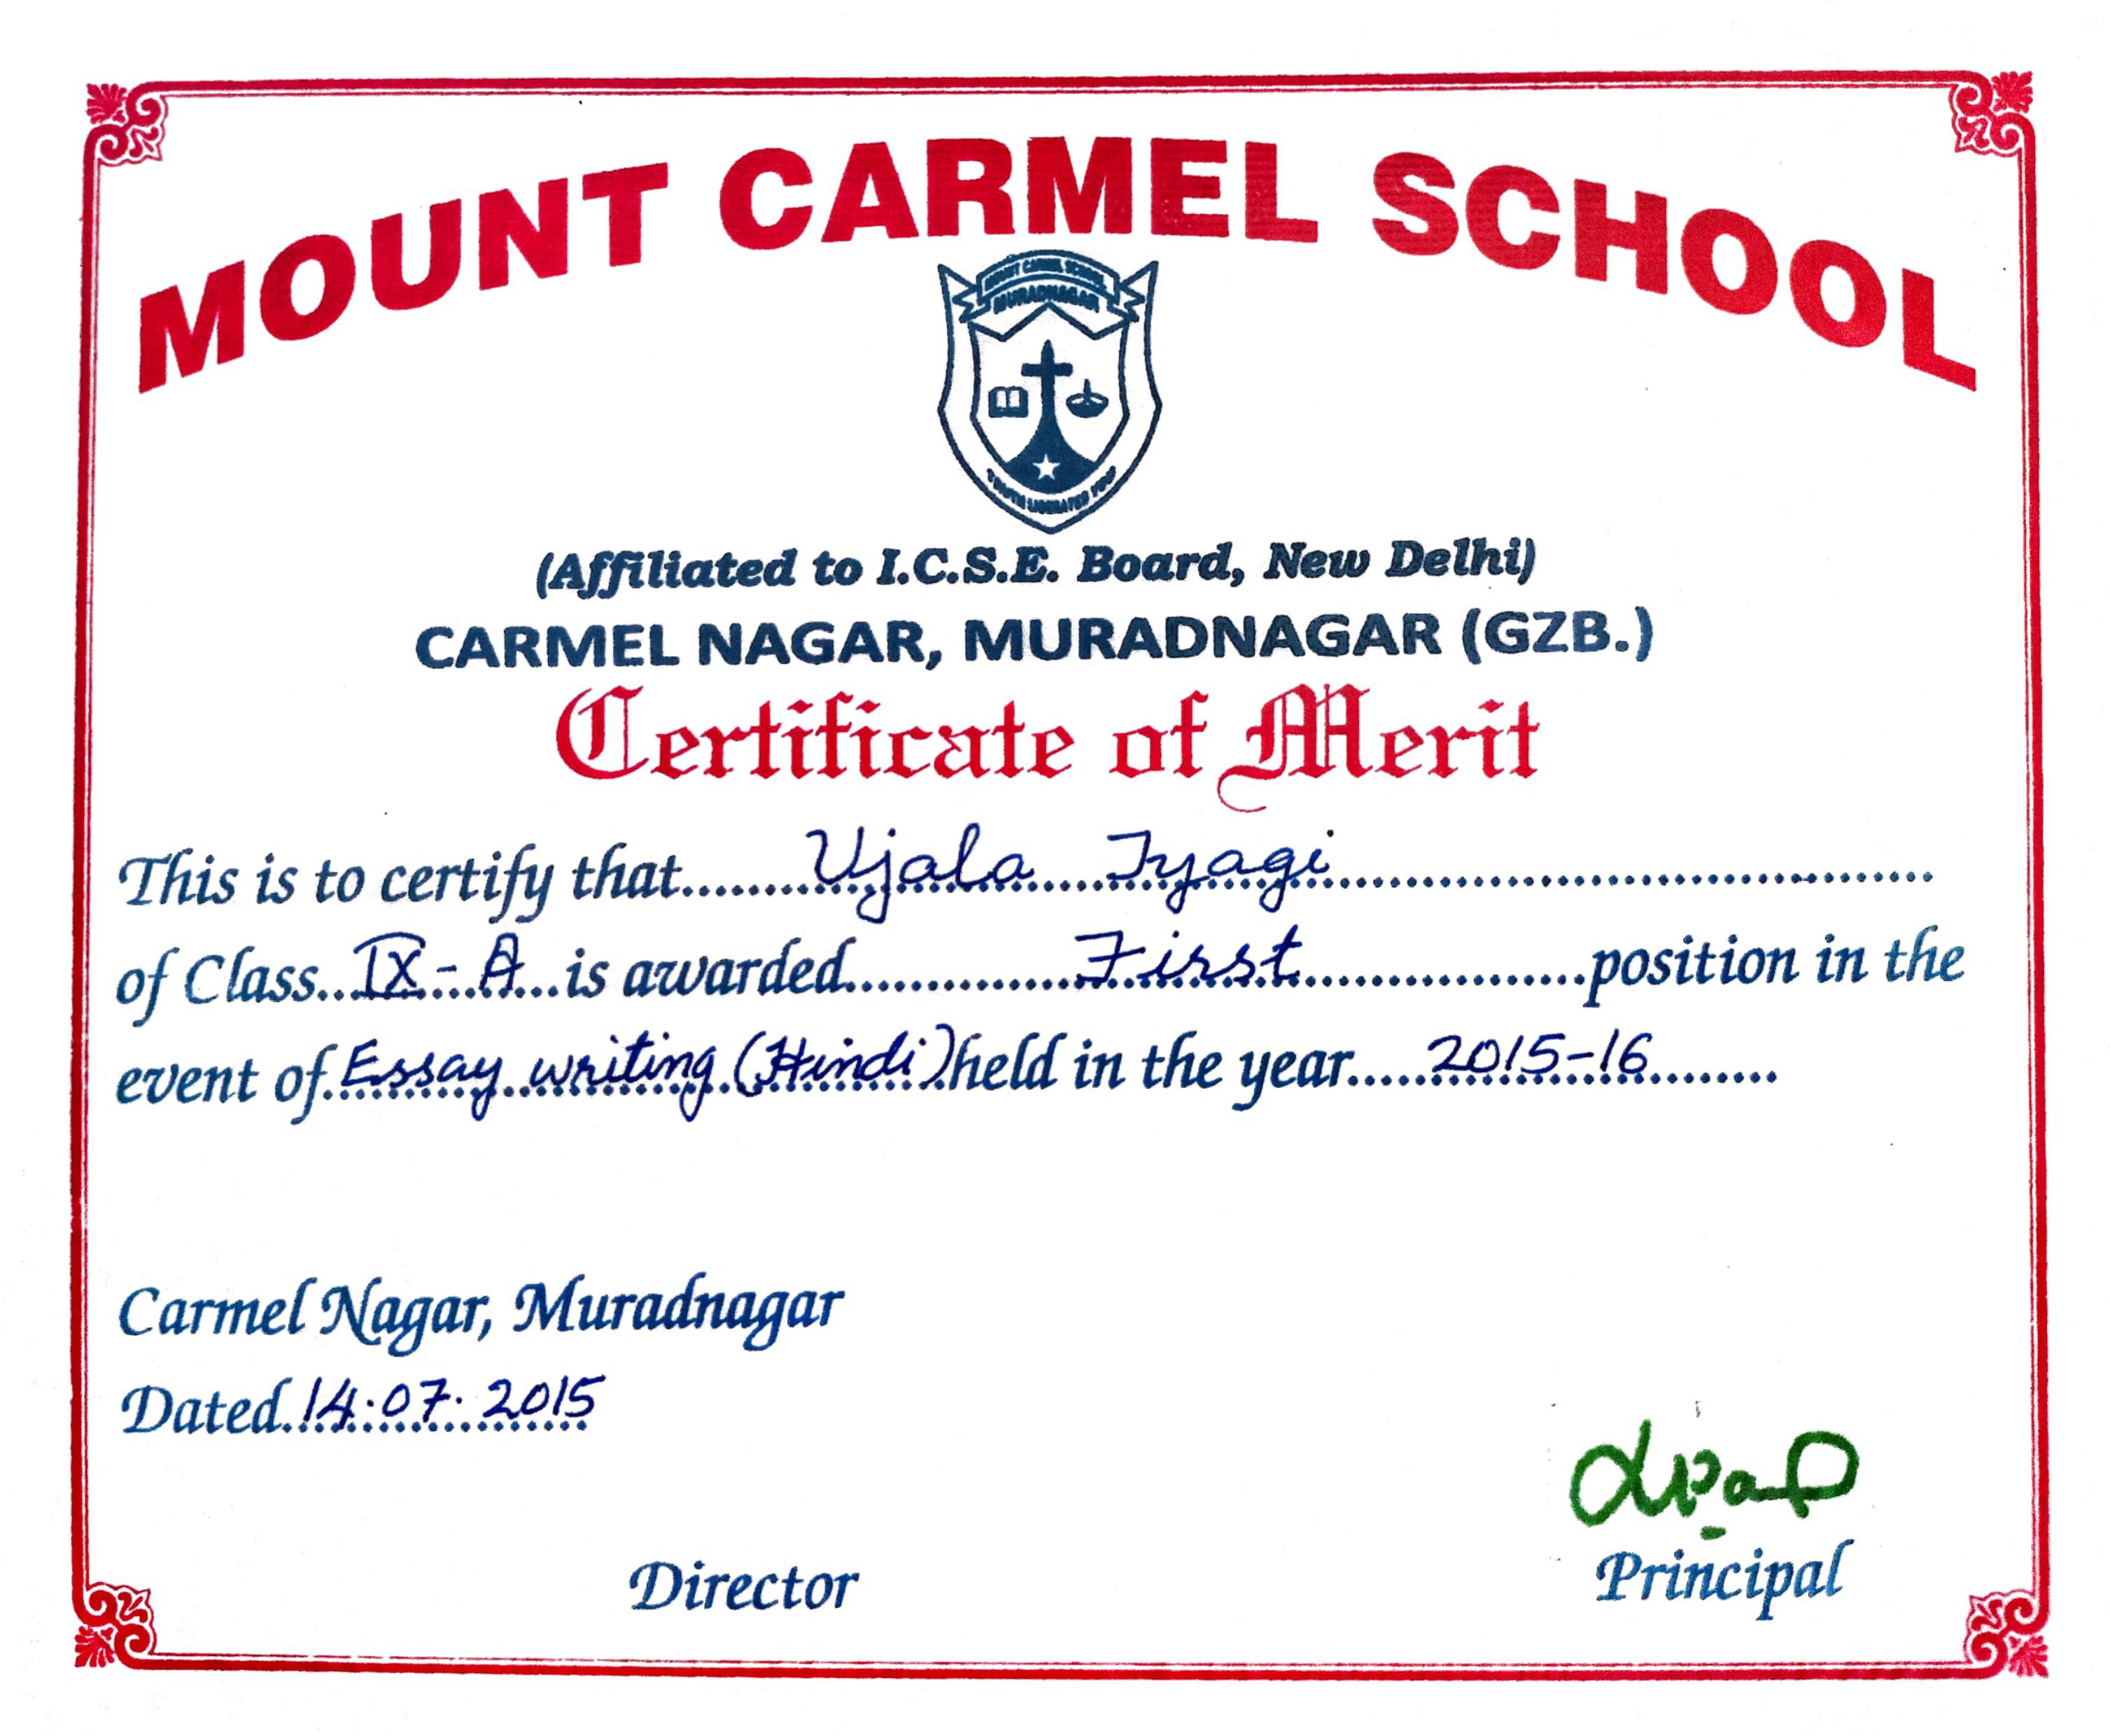 MOUNT CARMEL SCHOOL
MOUNT CARMEL SCHOOL
MURADNAGAR
TRUTH LIBERATES YOU
(Affiliated to I.C.S.E. Board, New Delhi)
CARMEL NAGAR, MURADNAGAR (GZB.)
Certificate of Merit
This is to certify that........Ujala Tyagi........
of Class...IX-A...is awarded........First........position in the
event of.Essay writing (Hindi).held in the year.....2015-16........
Carmel Nagar, Muradnagar
Dated.14.07.2015
Director
Principal